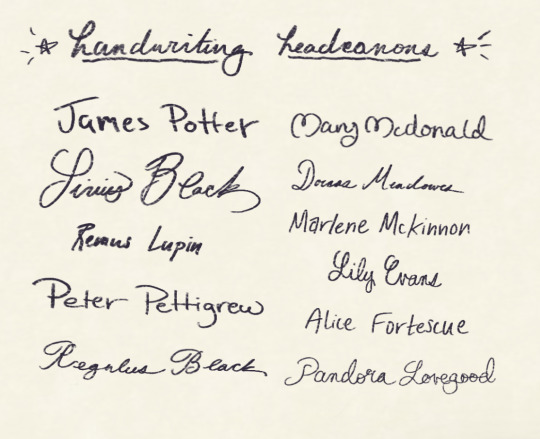 handwriting headcanons
James Potter
Sirius Black
Remus Lupin
Peter Pettigrew
Regulus Black
Mary Mcdonald
Dorcas Meadowes
Marlene Mckinnon
Lily Evans
Alice Fortescue
Pandora Lovegood